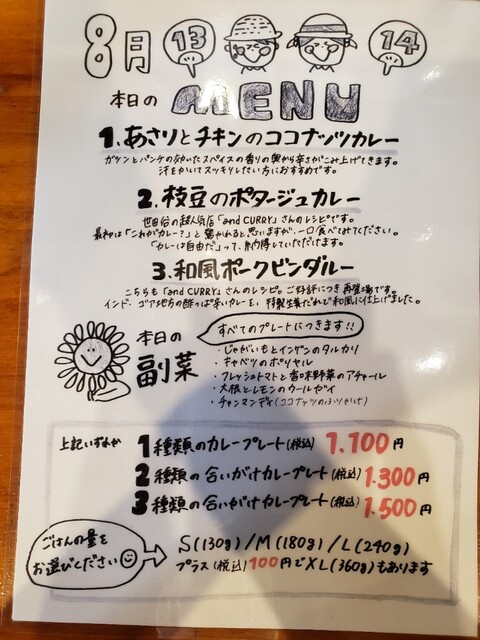 8月 13 14
本日の MENU
1. あさりとチキンのココナッツカレー
ガツンとパンチの効いたスパイスの香りの奥から辛さがこみ上げてきます。
汗をかいてスッキリしたい方におすすめです。
2. 枝豆のポタージュカレー
世田谷の超人気店「and CURRY」さんのレシピです。
最初は「これがカレー？」と驚かれると思いますが、一口食べてみてください。
「カレーは自由だ」って、納得していただけます。
3. 和風ポークビンダルー
こちらも「and CURRY」さんのレシピ。ご好評につき再登場です。
インド・ゴア地方の酸っぱ辛いカレーを、特製生姜だれで和風に仕上げました。
本日の
副菜
すべてのプレートにつきます!!
・じゃがいもとインゲンのタルカリ
・キャベツのポリヤル
・フレッシュトマトと香味野菜のアチャール
・大根とレモンのウールガイ
・チャンマンディ(ココナッツのふりかけ)
上記いずれか
1種類のカレープレート(税込) 1.100円
2種類の合いがけカレープレート(税込) 1.300円
3種類の合いがけカレープレート(税込) 1.500円
ごはんの量を
お選びください
S(130g)/M(180g)/L(240g)
プラス(税込)100円でXL(360g)もあります